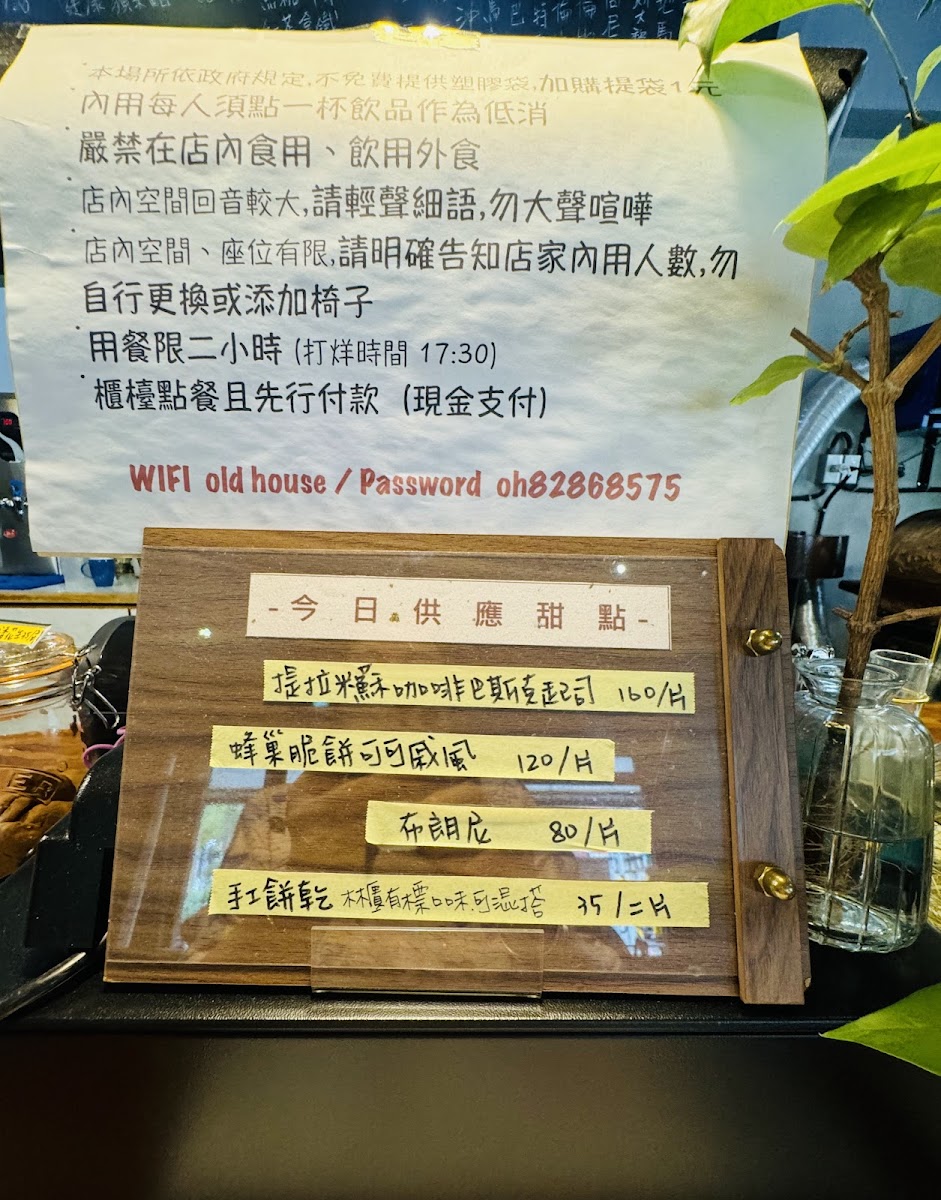 本場所依政府規定,不免費提供塑膠袋,加購提袋1元
內用每人須點一杯飲品作為低消
嚴禁在店內食用、飲用外食
店內空間回音較大,請輕聲細語,勿大聲喧嘩
店內空間、座位有限,請明確告知店家內用人數,勿
自行更換或添加椅子
用餐限二小時 (打烊時間 17:30)
櫃檯點餐且先行付款 (現金支付)
WIFI old house / Password oh82868575
-今日供應甜點-
提拉米蘇咖啡巴斯克起司 160/片
蜂巢脆餅可可戚風 120/片
布朗尼 80/片
手工餅乾 櫃有標口味可混搭 35/二片